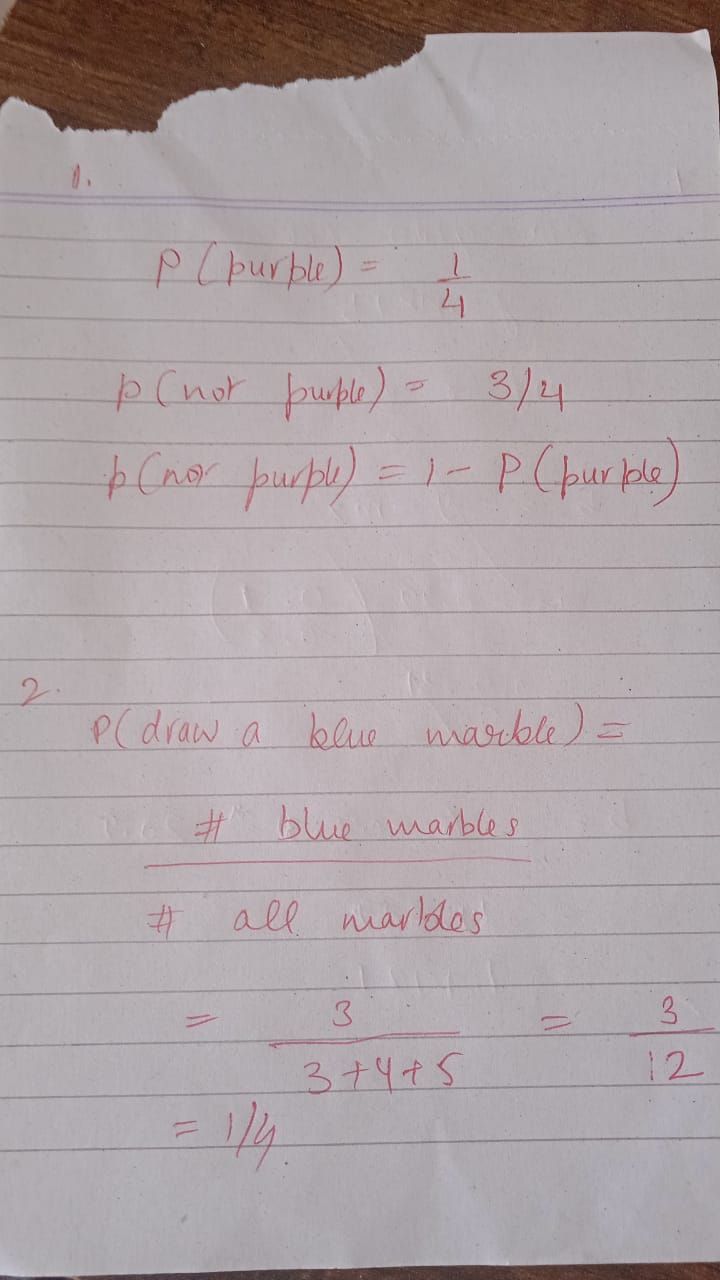 1.
P(purple) = 1/4
p(not purple) = 3/4
p(not purple) = 1 - P(purple)
2.
P(draw a blue marble) =
# blue marbles
# all marbles
= 3 / 3+4+5 = 3/12
= 1/4